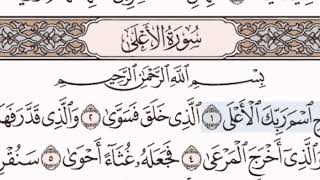 سُورَةُ الأَعْلَىٰ
بِسْمِ اللَّهِ الرَّحْمَٰنِ الرَّحِيمِ
اسْمَ رَبِّكَ الْأَعْلَى ١ الَّذِي خَلَقَ فَسَوَّىٰ ٢ وَالَّذِي قَدَّرَ فَهَ
وَالَّذِي أَخْرَجَ الْمَرْعَىٰ ٤ فَجَعَلَهُ غُثَاءً أَحْوَىٰ ٥ سَنُقْرِ